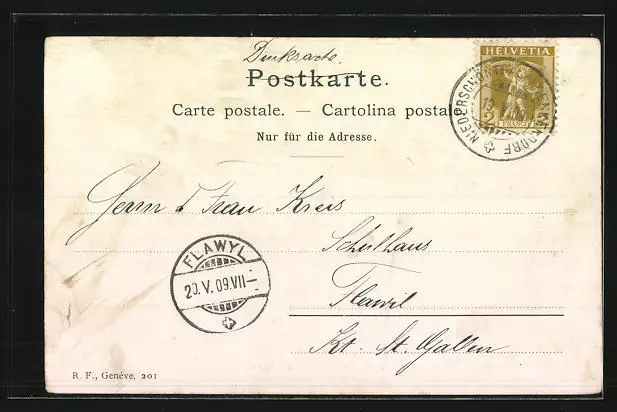 Drucksache.
Postkarte.
HELVETIA
Carte postale. — Cartolina postal
2
FRANCO
NIEDERSCHÖN
KERDORF
19
Nur für die Adresse.
Herrn & Frau Kreis
Schulhaus
FLAWYL
20.V.09.VII–
Flawil
Kt. St. Gallen
R. F., Genève. 201